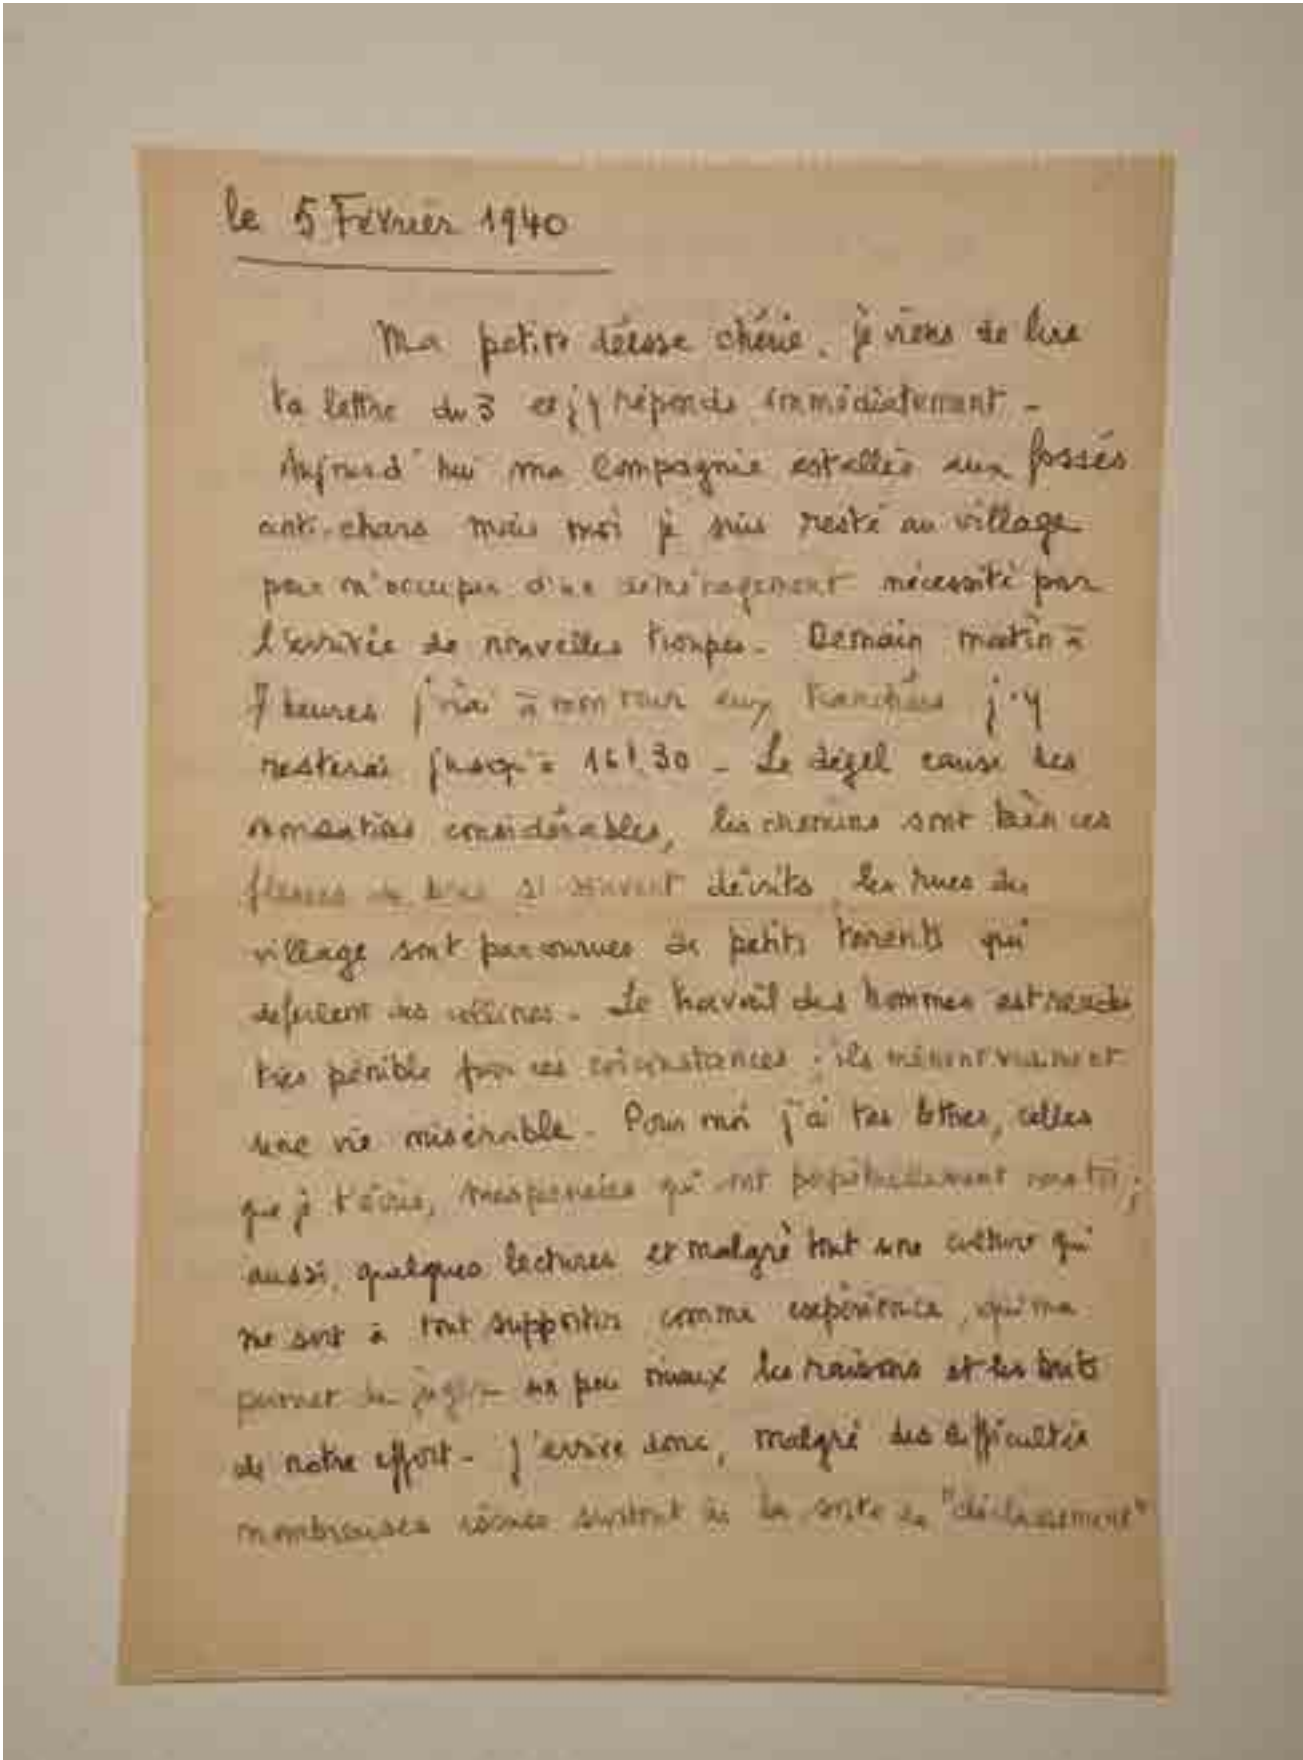 le 5 Février 1940
Ma petite déesse chérie, je viens de lire
ta lettre du 3 et j'y réponds immédiatement -
Aujourd'hui ma Compagnie est allée aux fossés
anti-chars mais moi je suis resté au village
pour m'occuper d'un déménagement nécessité par
l'arrivée de nouvelles troupes. Demain matin à
7 heures j'irai à mon tour aux tranchées j'y
resterai jusqu'à 16h.30 - Le dégel cause des
inondations considérables, les chemins sont bien ces
fleuves de boue si souvent décrits, les rues du
village sont parcourues de petits torrents qui
déferlent des collines. Le travail des hommes est rendu
très pénible par ces circonstances ; ils mènent vraiment
une vie misérable. Pour moi j'ai tes lettres, celles
que je t'écris, mes pensées qui vont perpétuellement vers toi ;
aussi, quelques lectures et malgré tout une culture qui
me sert à tout supporter comme expérience, qui me
permet de juger un peu mieux les raisons et les buts
de notre effort - J'arrive donc, malgré des difficultés
nombreuses surtout de la sorte de "déclassement"